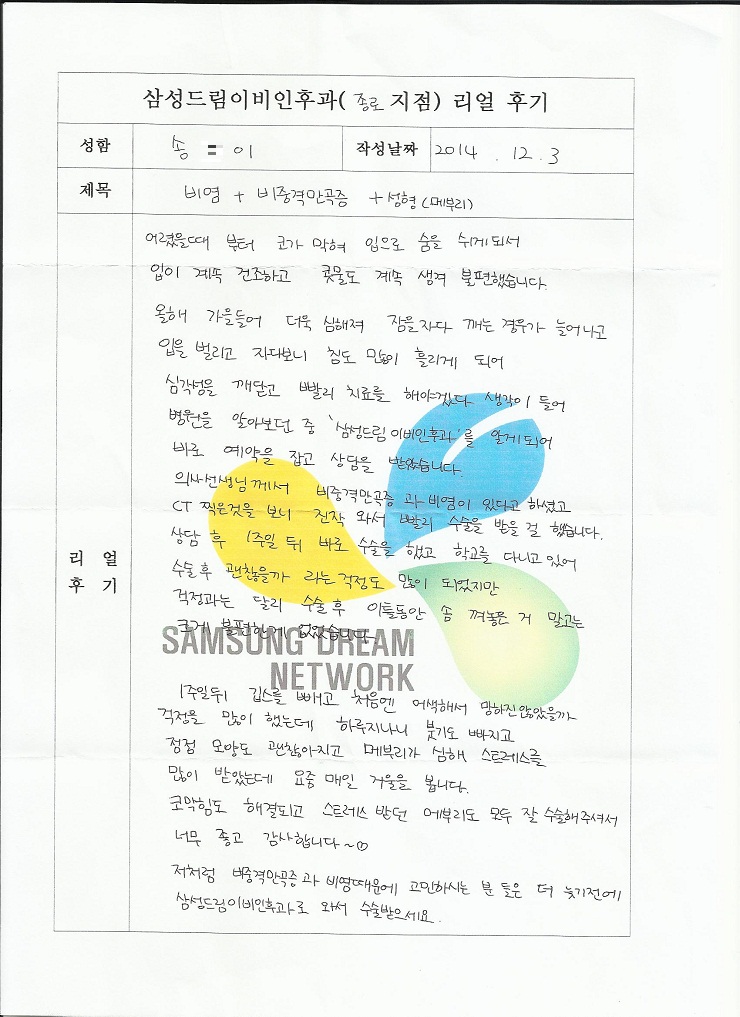 삼성드림이비인후과(종로 지점) 리얼 후기
성함 송 = 이 작성날짜 2014 . 12. 3
제목 비염 + 비중격만곡증 + 성형(메부리)
어렸을때 부터 코가 막혀 입으로 숨을 쉬게되서
입이 계속 건조하고 콧물도 계속 생겨 불편했습니다.
올해 가을들어 더욱 심해져 잠을자다 깨는 경우가 늘어나고
입을 벌리고 자다보니 침도 많이 흘리게 되어
심각성을 깨닫고 빨리 치료를 해야겠다 생각이 들어
병원을 알아보던 중 '삼성드림이비인후과'를 알게되어
바로 예약을 잡고 상담을 받았습니다.
의사선생님께서 비중격만곡증 과 비염이 있다고 하셨고
CT 찍은것을 보니 진작 와서 빨리 수술을 받을 걸 했습니다.
상담 후 1주일 뒤 바로 수술을 했고 학교를 다니고 있어
리 얼
후 기
수술 후 괜찮을까 라는 걱정도 많이 되었지만
걱정과는 달리 수술 후 이틀동안 솜 껴놓은 거 말고는
크게 불편한게 없었습니다.
SAMSUNG DREAM
NETWORK
1주일뒤 깁스를 빼고 처음엔 어색해서 망하진않았을까
걱정을 많이 했는데 하루지나니 붓기도 빠지고
점점 모양도 괜찮아지고 메부리가 심해 스트레스를
많이 받았는데 요즘 매일 거울을 봅니다.
코막힘도 해결되고 스트레스 받던 메부리도 모두 잘 수술해주셔서
너무 좋고 감사합니다~♡
저처럼 비중격만곡증과 비염때문에 고민하시는 분 들은 더 늦기전에
삼성드림이비인후과로 와서 수술받으세요.